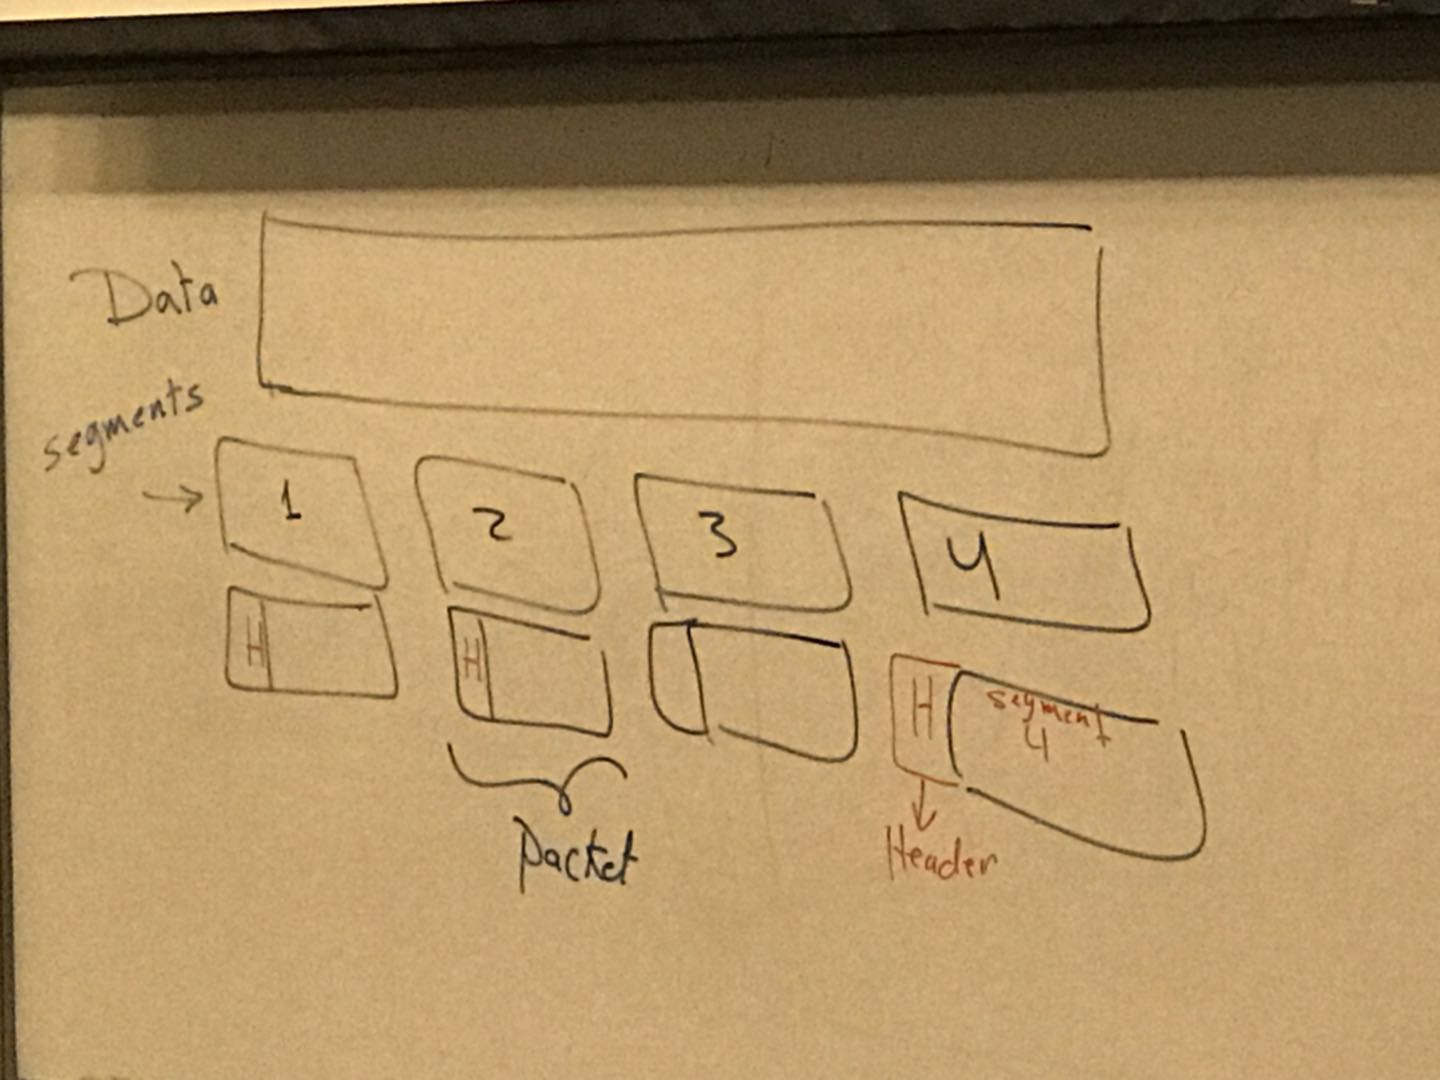 Data
segments
→ 1 2 3 4
H H H segment
4
Packet
Header